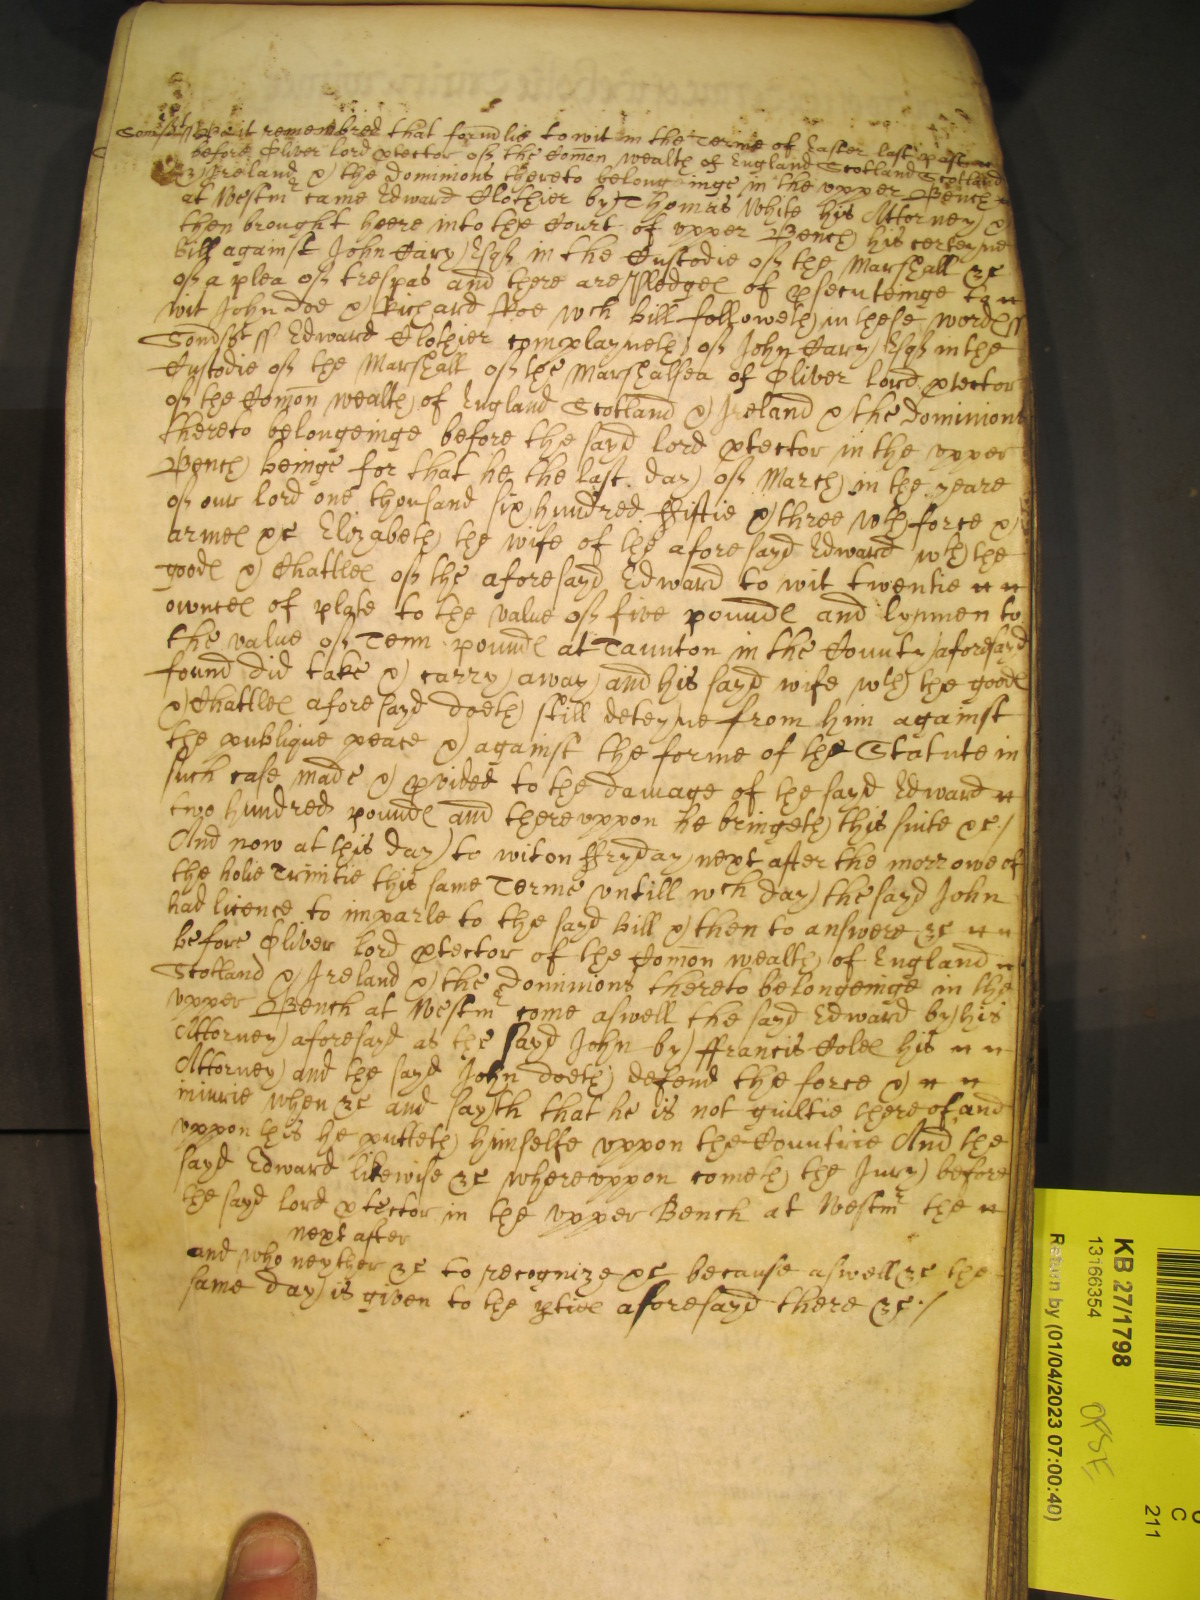 Somst ss Be it remembred that formlie to wit in the Terme of Easter last past
before Oliver lord ptector of the Comon wealth of England Scotland Scotland
& Ireland & the dominions thereto belongeinge in the upper Bench
at Westmr came Edward Clothier by Thomas White his Attorney &
then brought heere into the Court of upper Bench his certeyne
bill against John Cary Esqr in the Custodie of the Marshall &c
of a plea of trespas and there are Pledges of psecuteinge to
wit John Doe & Richard Roe wch bill followeth in these words ss
Somst ss Edward Clothier complayneth of John Cary Esqr in the
Custodie of the Marshall of the Marshalsea of Oliver lord ptector
of the Comon wealth of England Scotland & Ireland & the dominions
thereto belongeinge before the sayd lord ptector in the upper
Bench beinge for that he the last day of March in the yeare
of our lord one thousand six hundred ffiftie & three wth force &
armes &c Elizabeth the wife of the aforesayd Edward wth the
goods & Chattles of the aforesayd Edward to wit twentie
ownces of plate to the value of five pounds and lynnen to
the value of Tenn pounds at Taunton in the County aforesayd
found did take & carry away and his sayd wife wth the goods
& Chattles aforesayd doeth still deteyne from him against
the publique peace & against the forme of the Statute in
such case made & pvided to the damage of the sayd Edward
two hundred pounds and thereuppon he bringeth this suite &c /
And now at this day to wit on ffryday next after the morrowe of
the holie Trinitie this same Terme untill wch day the sayd John
had licence to imparle to the sayd bill & then to answere &c
before Oliver lord ptector of the Comon wealth of England
Scotland & Ireland & the Dominions thereto belongeinge in the
upper Bench at Westmr come aswell the sayd Edward by his
Attorney aforesayd as the sayd John by ffrancis Coles his
Attorney and the sayd John doeth defend the force &
iniurie when &c and sayth that he is not guiltie thereof and
uppon this he putteth himselfe uppon the Countrie And the
sayd Edward likewise &c whereuppon cometh the Jury before
the sayd lord ptector in the upper Bench at Westmr the
next after
and who neyther &c to recognize &c because aswell &c the
same day is given to the pties aforesayd there &c /
KB 27/1798
13166354
Return by (01/04/2023 07:00:40)
C
211